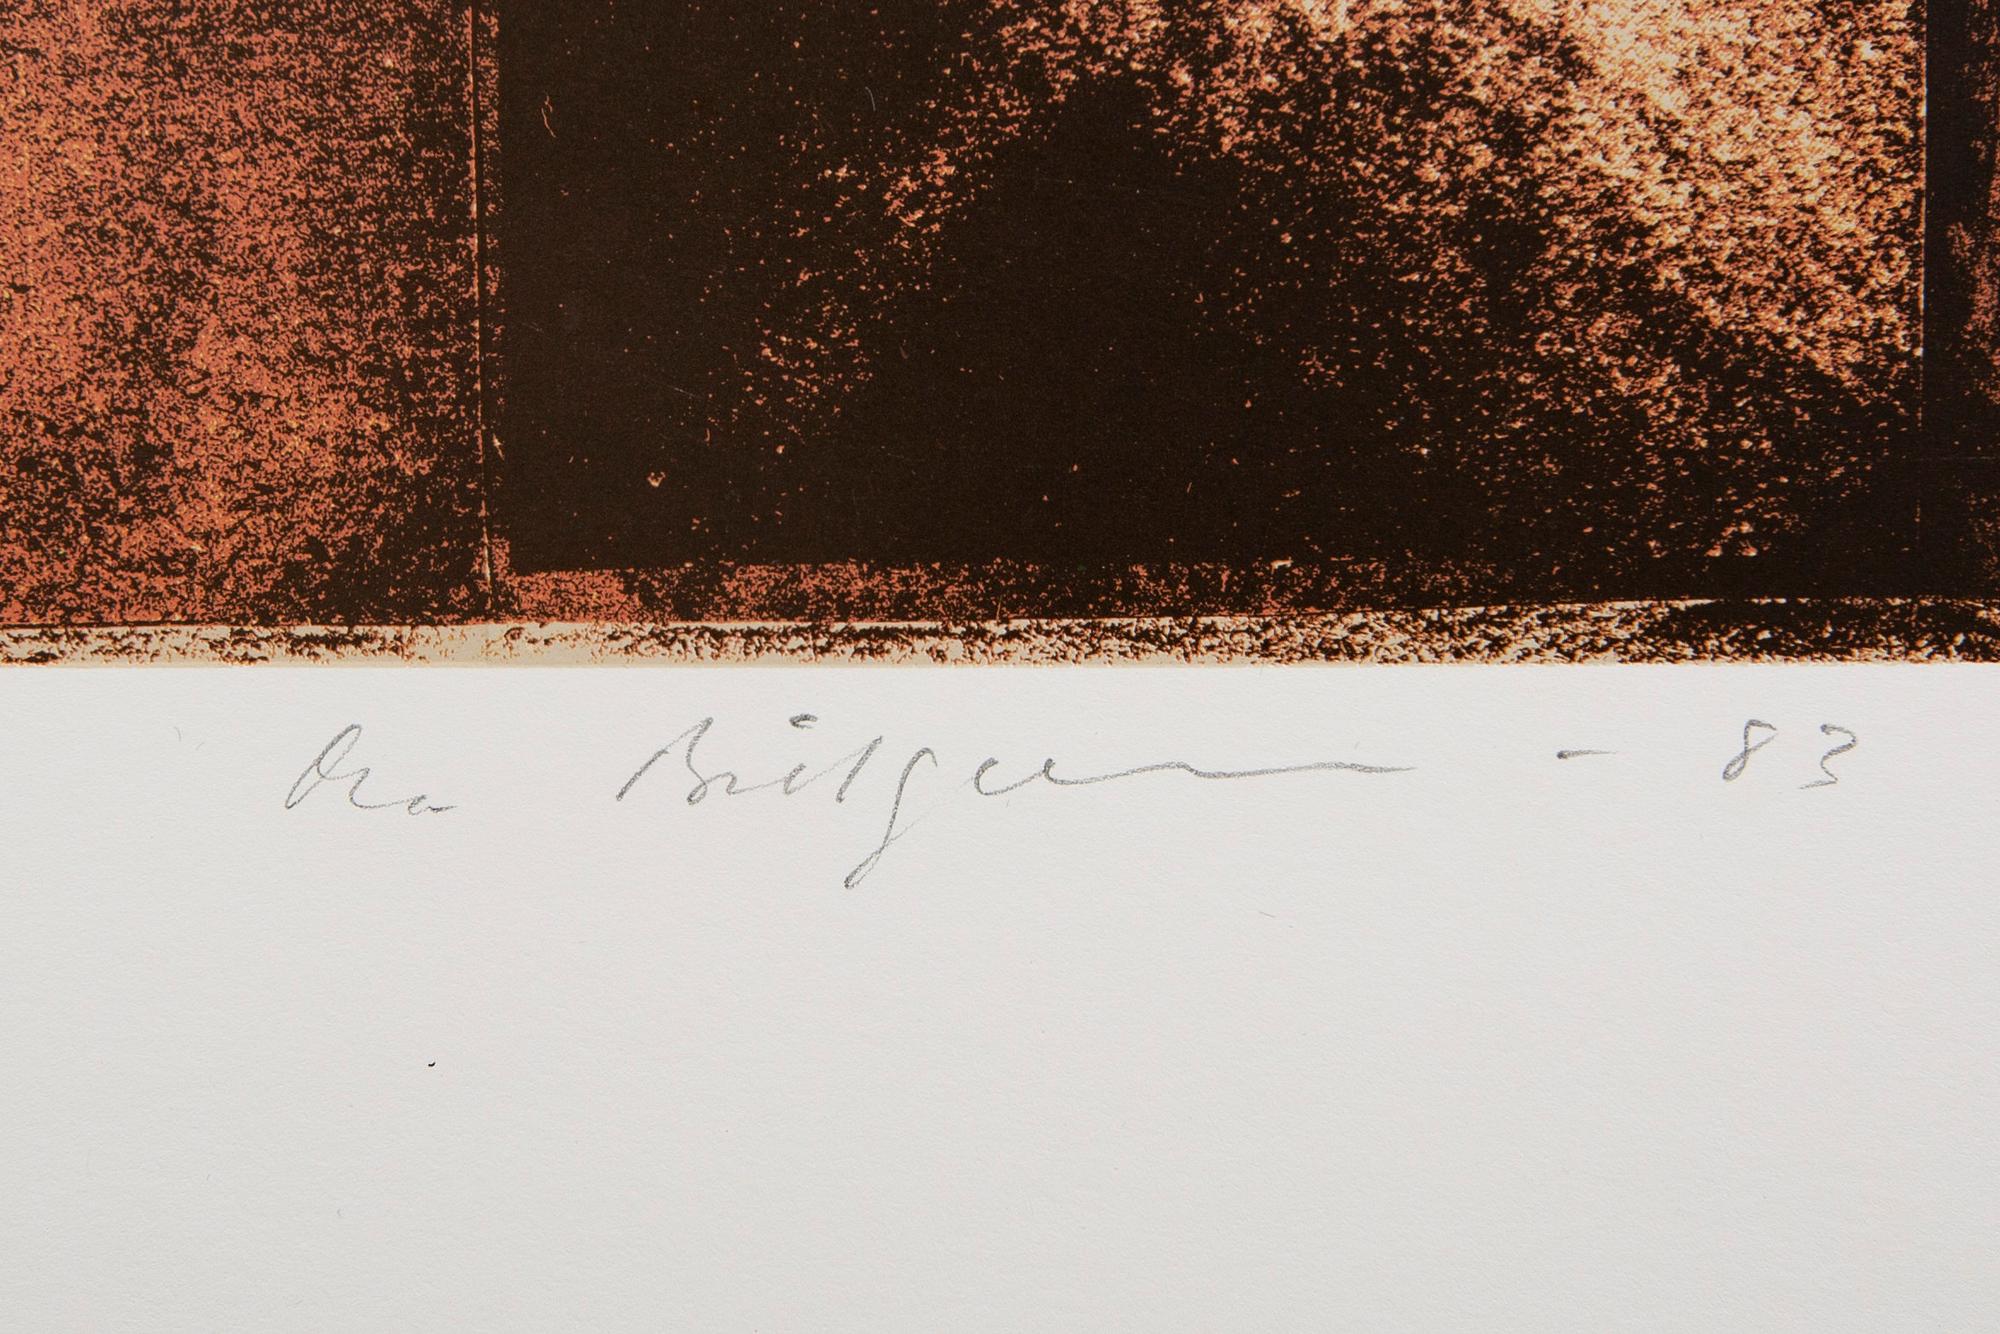 Ola Billgren - 83